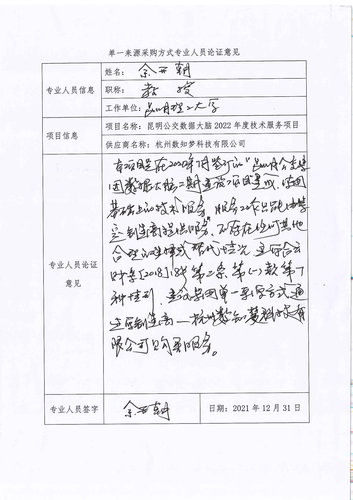 单一来源采购方式专业人员论证意见
专业人员信息
姓名：余西朝
职称：教授
工作单位：昆明理工大学
项目信息
项目名称：昆明公交数据大脑 2022 年度技术服务项目
供应商名称：杭州数知梦科技有限公司
专业人员论证
意见
本项目是在 年 月签订的"昆明公交集
团数据大脑二期建设项目
基础上的技术服务，服务
定制 提供服务，不存在任何其他
合理的选择或替代情况，符合云
财采[2018]18号第二条第(一)款第
种情形，建议 单一来源方式 通
过 杭州数知梦科技有
限公司 购买服务。
专业人员签字
余西朝
日期：2021 年 12 月 31 日